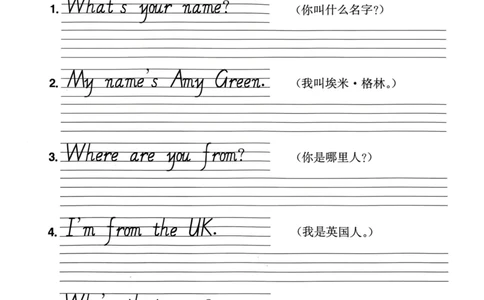 1. What's your name? （你叫什么名字?）
2. My name's Amy Green. （我叫埃米·格林。）
3. Where are you from? （你是哪里人?）
4. I'm from the UK. （我是英国人。）